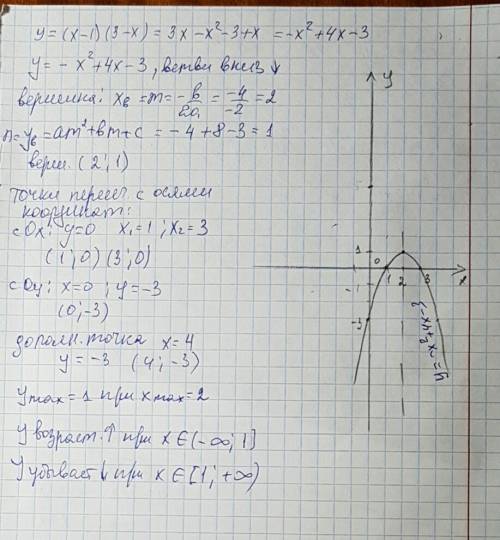 y=(x-1)(3-x) = 3x-x²-3+x = -x²+4x-3
y = -x²+4x-3, ветви вниз ↓
вершина: xв = m = -в/2a = -4/-2 = 2
n=yв = am²+вm+c = -4+8-3 = 1
верш. (2;1)
точки перес. с осями
координат:
с Ox: y=0 x₁=1; x₂=3
(1;0) (3;0)
с Oy: x=0; y=-3
(0;-3)
дополн. точка x=4
y = -3 (4;-3)
y max = 1 при x max = 2
y возраст. ↑ при x∈(-∞;1]
y убывает ↓ при x∈[1;+∞)
y
1
0
1 2 3
x
-1
-3
y=-x²+4x-3